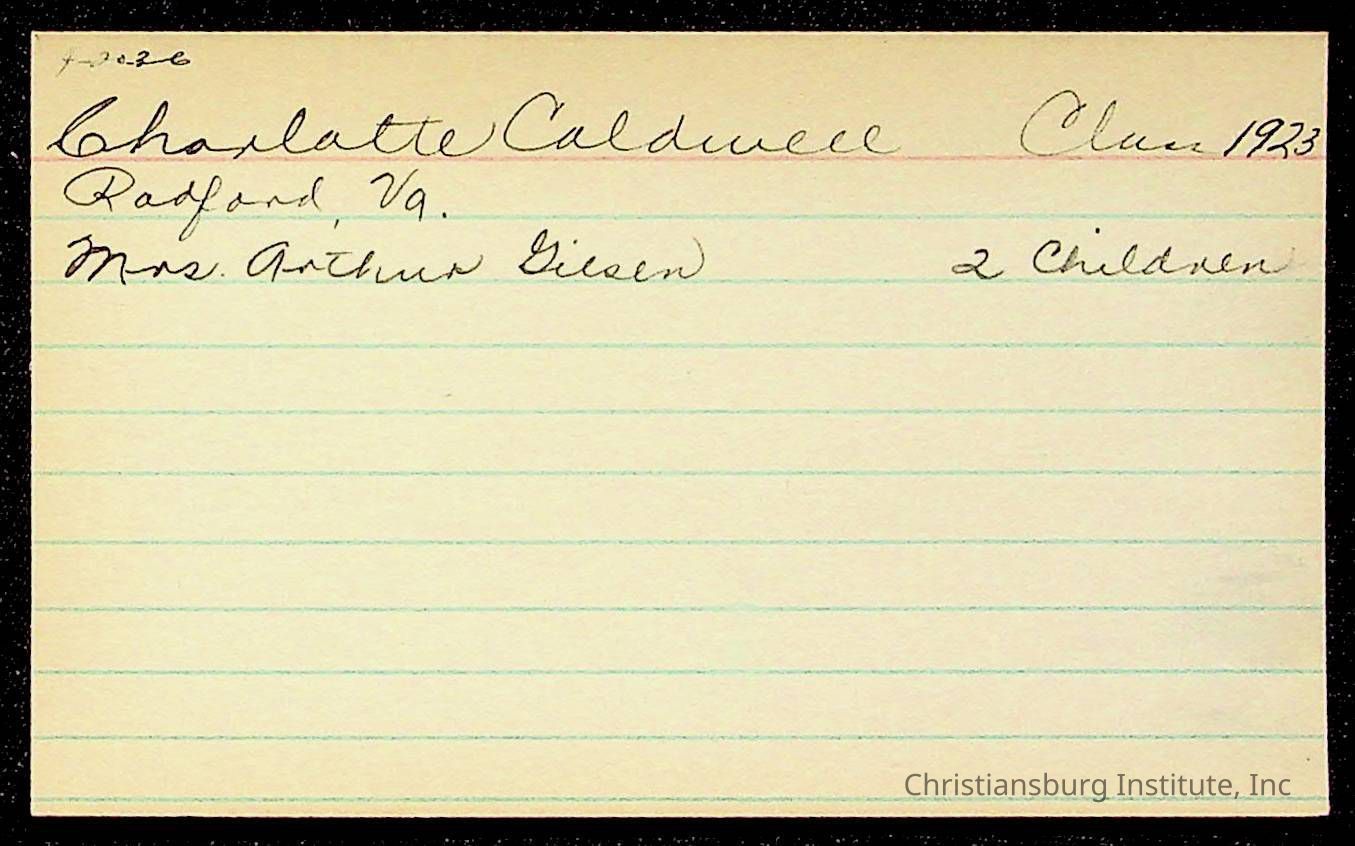 Charlotte Caldwell Class 1923
Radford, Va.
Mrs. Arthur Gilsen 2 Children
Christiansburg Institute, Inc